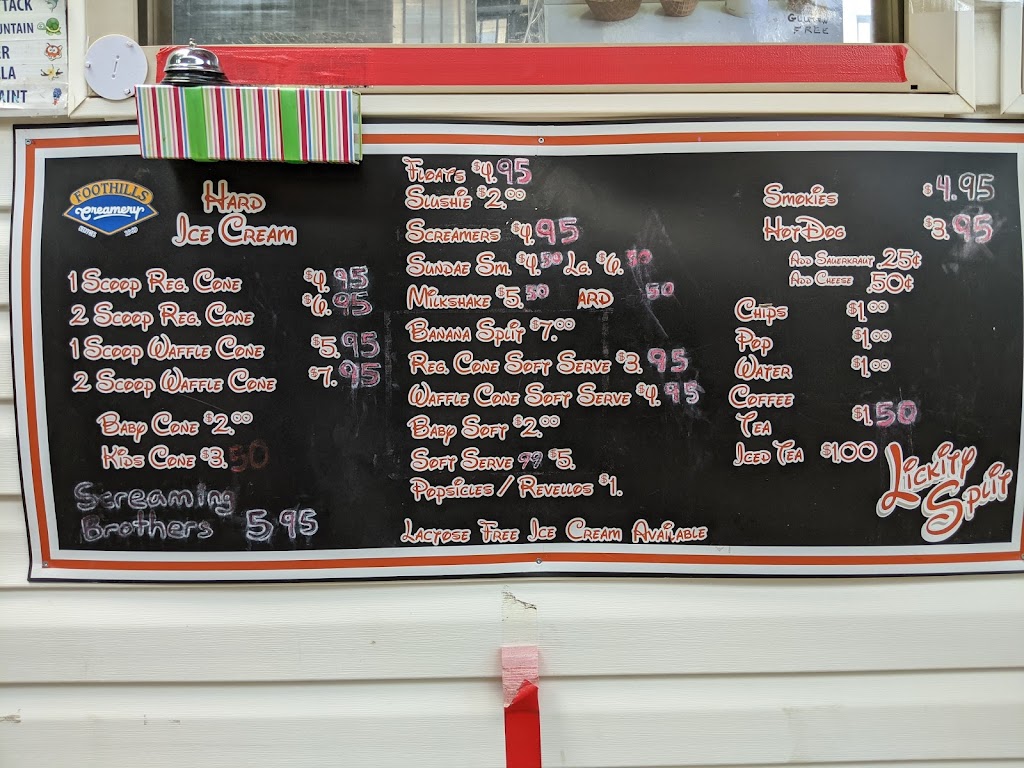 TTACK
OUNTAIN
ER
LA
AINT
GLUTEN
FREE
FOOTHILLS
Creamery
Hard
Ice Cream
1 Scoop Reg. Cone $4.95
2 Scoop Reg. Cone $6.95
1 Scoop Waffle Cone $5.95
2 Scoop Waffle Cone $7.95
Baby Cone $2.00
Kids Cone $3.50
Screaming
Brothers 5.95
Floats $4.95
Slushie $2.00
Screamers $4.95
Sundae Sm. $4.50 Lg. $6.50
Milkshake $5.50 ARD 50
Banana Split $7.00
Reg. Cone Soft Serve $3.95
Waffle Cone Soft Serve $4.95
Baby Soft $2.00
Soft Serve 99 $5.
Popsicles / Revellos $1.
Lactose Free Ice Cream Available
Smokies $4.95
HotDog $3.95
Add Sauerkraut .25¢
Add Cheese .50¢
Chips $1.00
Pop $1.00
Water $1.00
Coffee
Tea $1.50
Iced Tea $1.00
Lickity
Split